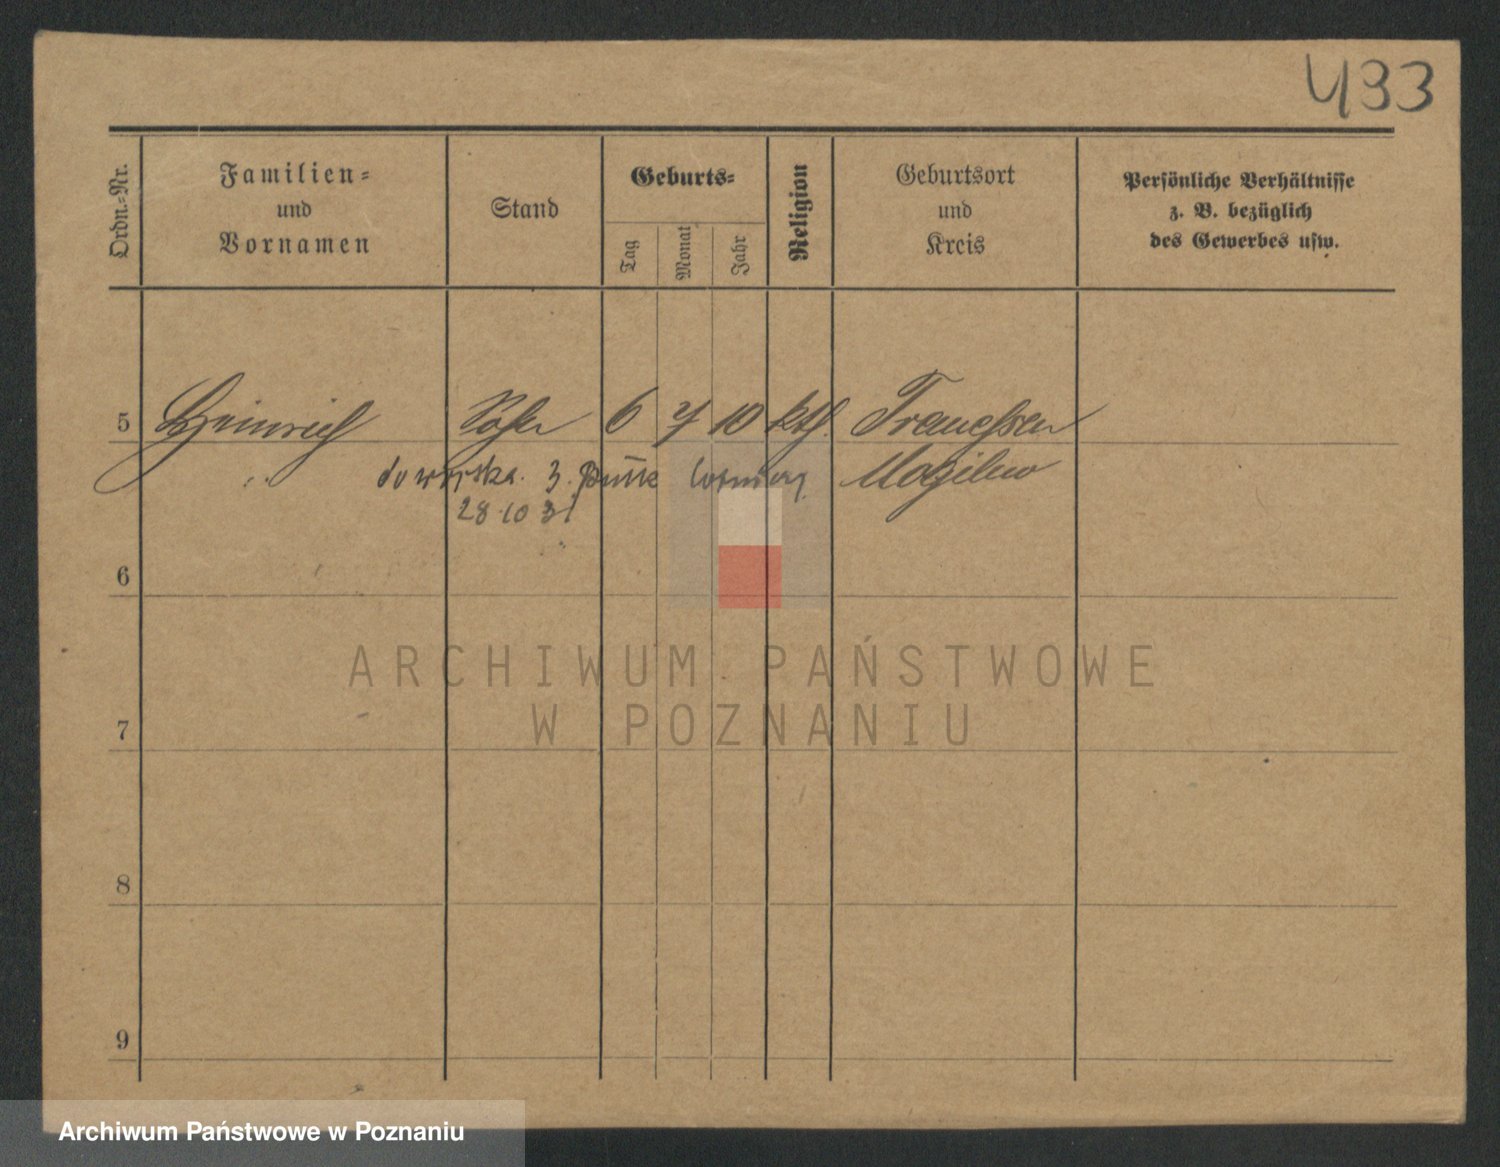 433
Ordn.-Nr.
Familien-
und
Vornamen
Stand
Geburts-
Tag
Monat
Jahr
Religion
Geburtsort
und
Kreis
Persönliche Verhältnisse
z. B. bezüglich
des Gewerbes usw.
5 Heinrich Sohn 6 7 10 kth.
do wojska. 3. Pułk lotniczy Mogilno
28.10 31
6
7
8
9
ARCHIWUM PAŃSTWOWE
W POZNANIU
Archiwum Państwowe w Poznaniu